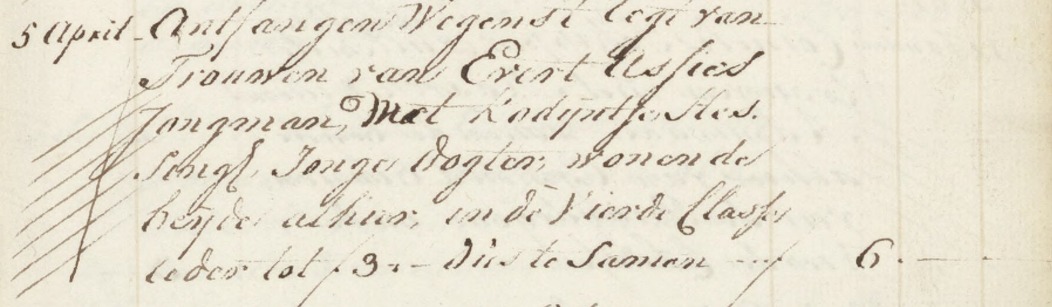 5 April - Antfangen Wegens t Regt van
Trouwen van Evert Assies
Jongman, Met
Jonge Dogter, wonende
beyde alhier, in de Vierde Classe
ieder tot f 3 - - Dus te Samen - f 6. -